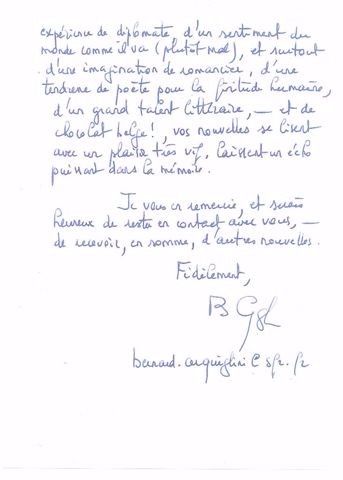 expérience de diplomate, d'un sentiment du
monde comme il va (plutôt mal), et surtout
d'une imagination de romancier, d'une
tendresse de poète pour la finitude humaine,
d'un grand talent littéraire, — et de
chocolat belge!, vos nouvelles se lisent
avec un plaisir très vif, laissent un écho
puissant dans la mémoire.
Je vous en remercie, et serais
heureux de rester en contact avec vous, —
de recevoir, en somme, d'autres nouvelles.
Fidèlement,
B
bernard.cerquiglini